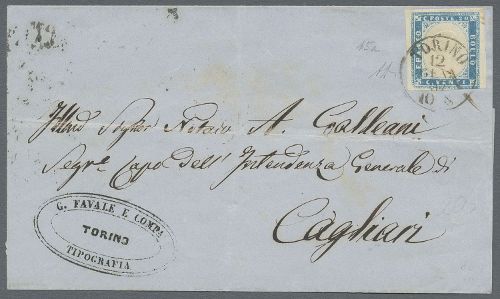 C. POSTE 20
FRANCO
BOLLO
C. VENTI
15a
TORINO
12
10 S
Illmo Sigr Notaio A. Galleani
Segr.o Capo dell'Intendenza Generale di
Cagliari
G. FAVALE E COMPA
TORINO
TIPOGRAFIA